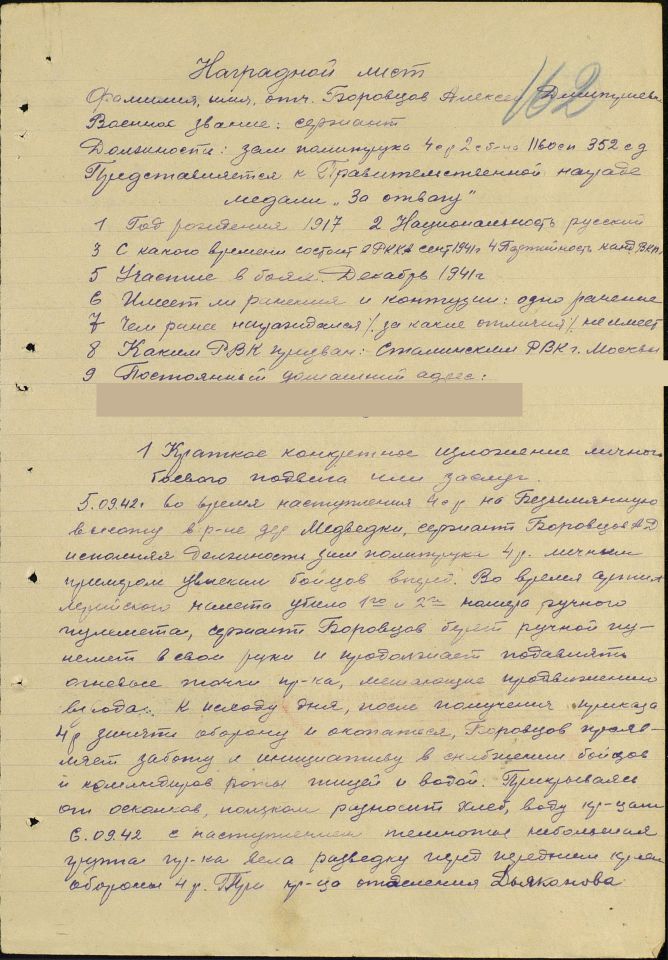 162
Наградной лист
Фамилия, имя, отч. Боровцов Алексей Дмитриевич
Военное звание: сержант
Должность: зам политрука 4 ср 2 сб-на 1160 сп 352 сд
Представляется к Правительственной награде
медали „За отвагу"
1 Год рождения 1917 2 Национальность русский
3 С какого времени состоит в РККА сент 1941г 4 Партийность канд. ВКП
5 Участие в боях: Декабрь 1941г
6 Имеет ли ранения и контузии: одно ранение
7 Чем ранее награждался /за какие отличия/ не имеет
8 Каким РВК призван: Сталинским РВК г. Москвы
9 Постоянный домашний адрес:
1 Краткое конкретное изложение личного
боевого подвига или заслуг.
5.09.42г во время наступления 4 ср на Безымянную
высоту в р-не дер Медведки, сержант Боровцов АД
исполняя должность зам политрука 4 р. личным
примером увлекал бойцов вперед. Во время артил
лерийского налета убило 1го и 2го номера ручного
пулемета, сержант Боровцов берет ручной пу-
лемет в свои руки и продолжает подавлять
огневые точки пр-ка, мешающие продвижению
взвода. К исходу дня, после получения приказа
4 р занять оборону и окопаться, Боровцов прояв-
ляет заботу и инициативу в снабжении бойцов
и командиров роты пищей и водой. Прикрываясь
от осколков, ползком разносит хлеб, воду кр-цам
6.09.42 с наступлением темноты небольшая
группа пр-ка вела разведку перед передним краем
обороны 4 р. Три кр-ца отделения Дьяконова